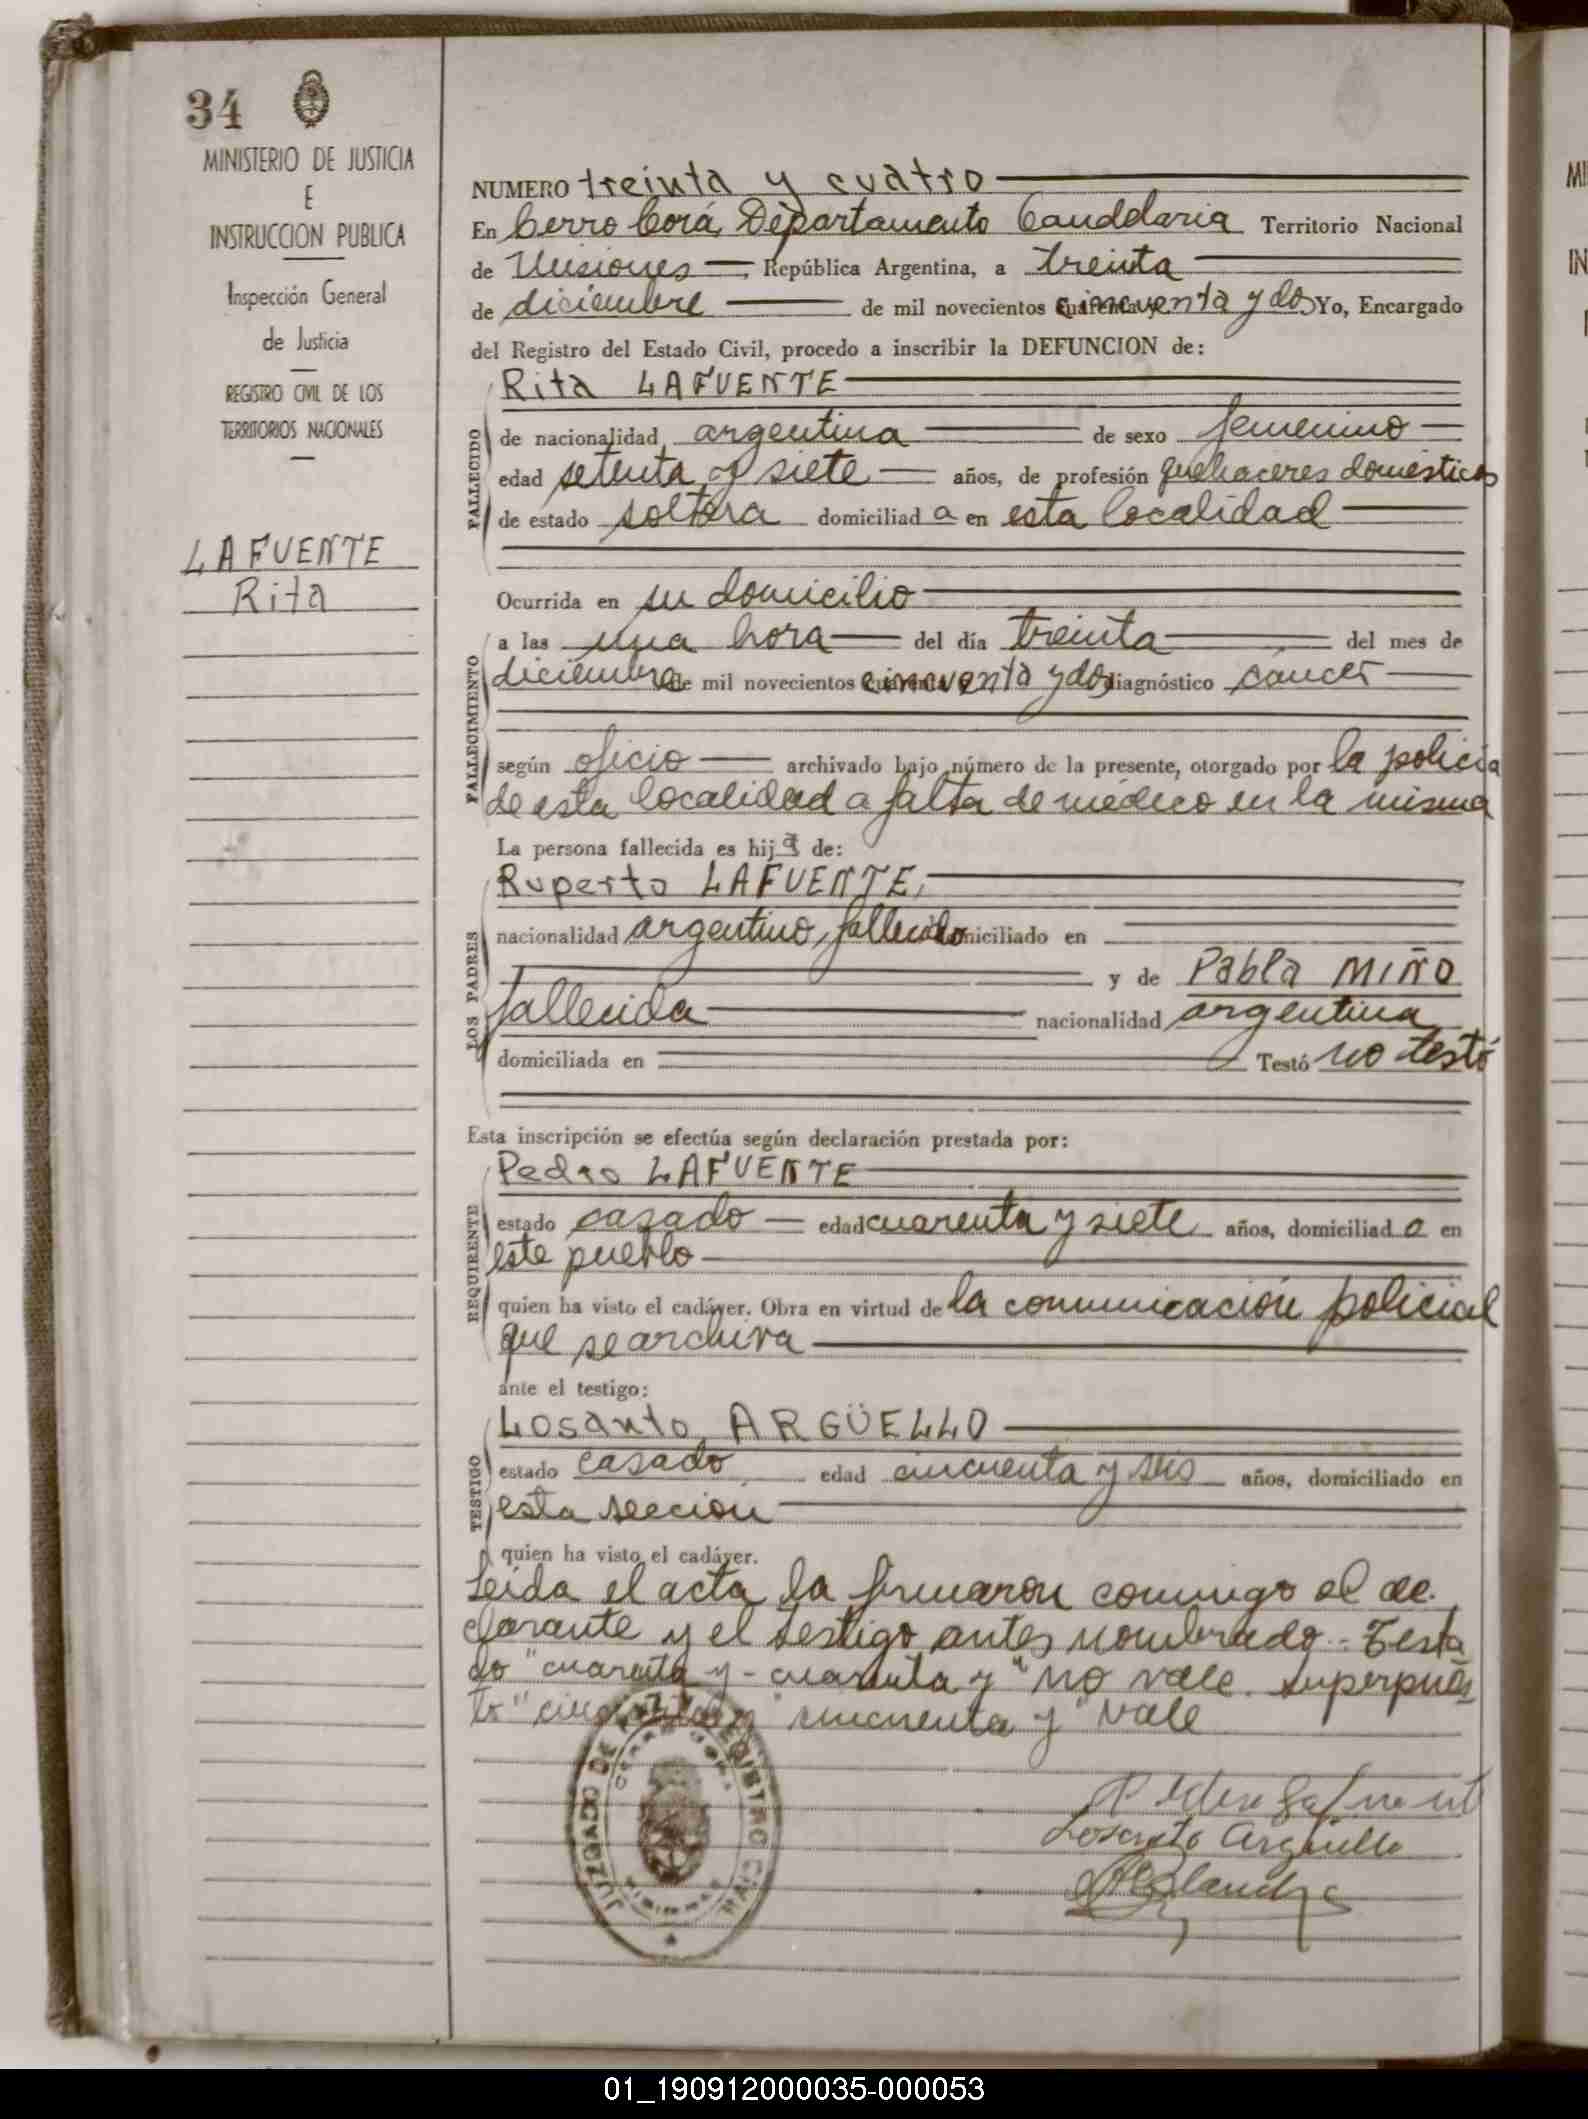 34
MINISTERIO DE JUSTICIA
E
INSTRUCCION PUBLICA
Inspección General
de Justicia
REGISTRO CIVIL DE LOS
TERRITORIOS NACIONALES
LAFUENTE
Rita
NUMERO treinta y cuatro
En Cerro Corá, Departamento Candelaria Territorio Nacional
de Misiones, República Argentina, a treinta
de diciembre de mil novecientos cincuenta y dos Yo, Encargado
del Registro del Estado Civil, procedo a inscribir la DEFUNCION de:
Rita LAFUENTE
FALLECIDO
de nacionalidad argentina de sexo femenino
edad setenta y siete años, de profesión quehaceres domésticos
de estado soltera domiciliad a en esta localidad
Ocurrida en su domicilio
FALLECIMIENTO
a las una hora del día treinta del mes de
diciembre de mil novecientos cincuenta y dos diagnóstico cáncer
según oficio archivado bajo número de la presente, otorgado por la policia
de esta localidad a falta de médico en la misma
La persona fallecida es hija de:
LOS PADRES
Ruperto LAFUENTE,
nacionalidad argentino, fallecido domiciliado en
y de Pabla MIÑO
fallecida nacionalidad argentina
domiciliada en Testó no testó
Esta inscripción se efectúa según declaración prestada por:
REQUIRENTE
Pedro LAFUENTE
estado casado edad cuarenta y siete años, domiciliad o en
este pueblo
quien ha visto el cadáver. Obra en virtud de la comunicación policial
que se archiva
ante el testigo:
TESTIGO
Losanto ARGÜELLO
estado casado edad cincuenta y seis años, domiciliado en
esta sección
quien ha visto el cadáver.
Leída el acta la firmaron conmigo el de-
clarante y el testigo antes nombrado.- Testa
do "cuarenta y - cuarenta y" no vale. Superpues
to "cincuenta y "cincuenta y" vale
JUZGADO DE PAZ Y REGISTRO CIVIL
CERRO CORA
MISIONES
Pedro Lafuente
Losanto Argüello
01_190912000035-000053